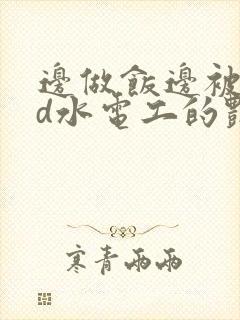 邊做飯邊被
d水電工的
寒青雨雨